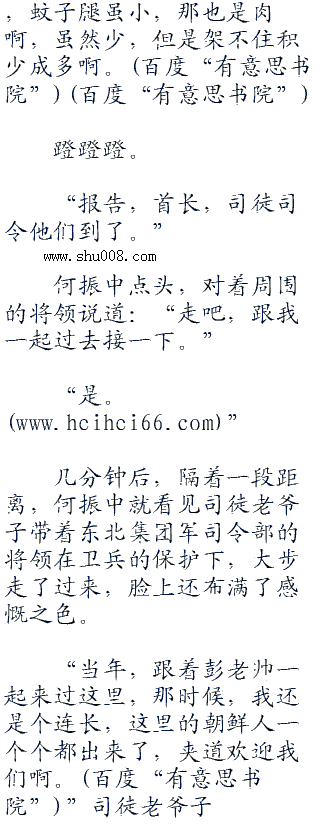 ，蚊子腿虽小，那也是肉
啊，虽然少，但是架不住积
少成多啊。(百度“有意思书
院”)(百度“有意思书院”)
蹬蹬蹬。
“报告，首长，司徒司
令他们到了。”
www.shu008.com
何振中点头，对着周围
的将领说道：“走吧，跟我
一起过去接一下。”
“是。
(www.hcihci66.com)”
几分钟后，隔着一段距
离，何振中就看见司徒老爷
子带着东北集团军司令部的
将领在卫兵的保护下，大步
走了过来，脸上还布满了感
慨之色。
“当年，跟着彭老帅一
起来过这里，那时候，我还
是个连长，这里的朝鲜人一
个个都出来了，夹道欢迎我
们啊。(百度“有意思书
院”)”司徒老爷子